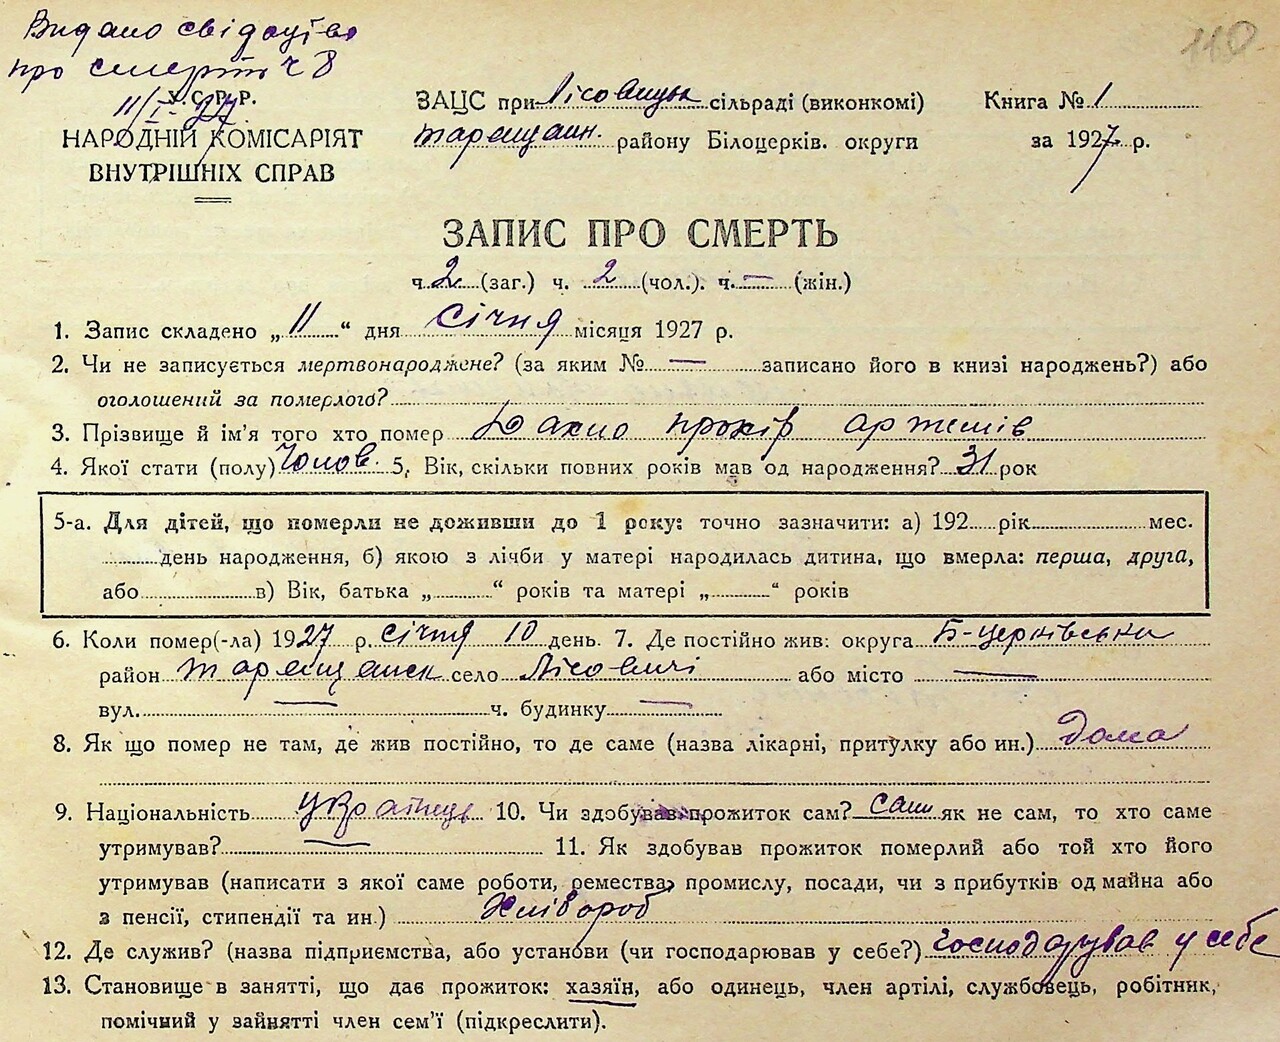 Видано свідоцтво
про смерть ч 8
11/I-27
110
У.С.Р.Р.
НАРОДНІЙ КОМІСАРІЯТ
ВНУТРІШНІХ СПРАВ
ЗАЦС при Лісовицьк сільраді (виконкомі)
Таращан. району Білоцерків. округи
Книга № 1
за 1927 р.
ЗАПИС ПРО СМЕРТЬ
ч. 2 (заг.) ч. 2 (чол.). ч. — (жін.)
1. Запис складено „ 11 “ дня січня місяця 1927 р.
2. Чи не записується мертвонароджене? (за яким № — записано його в книзі народжень?) або
оголошений за померлого?
3. Прізвище й ім'я того хто помер Дахно Прокір Артемів
4. Якої стати (полу) Чолов. 5. Вік, скільки повних років мав од народження? 31 рок
5-а. Для дітей, що померли не доживши до 1 року: точно зазначити: а) 192 рік мес.
день народження, б) якою з лічби у матері народилась дитина, що вмерла: перша, друга,
або в) Вік, батька „ “ років та матері „ “ років
6. Коли помер(-ла) 1927 р. січня 10 день. 7. Де постійно жив: округа Б-церківська
район Таращанск село Лісовичі або місто —
вул. — ч. будинку —
8. Як що помер не там, де жив постійно, то де саме (назва лікарні, притулку або ин.) Дома
9. Національність українець 10. Чи здобував прожиток сам? сам як не сам, то хто саме
утримував? — 11. Як здобував прожиток померлий або той хто його
утримував (написати з якої саме роботи, ремества, промислу, посади, чи з прибутків од майна або
з пенсії, стипендії та ин.) Хлівороб
12. Де служив? (назва підприємства, або установи (чи господарював у себе?) господарував у себе
13. Становище в занятті, що дає прожиток: хазяїн, або одинець, член артілі, службовець, робітник,
помічний у зайнятті член сем'ї (підкреслити).